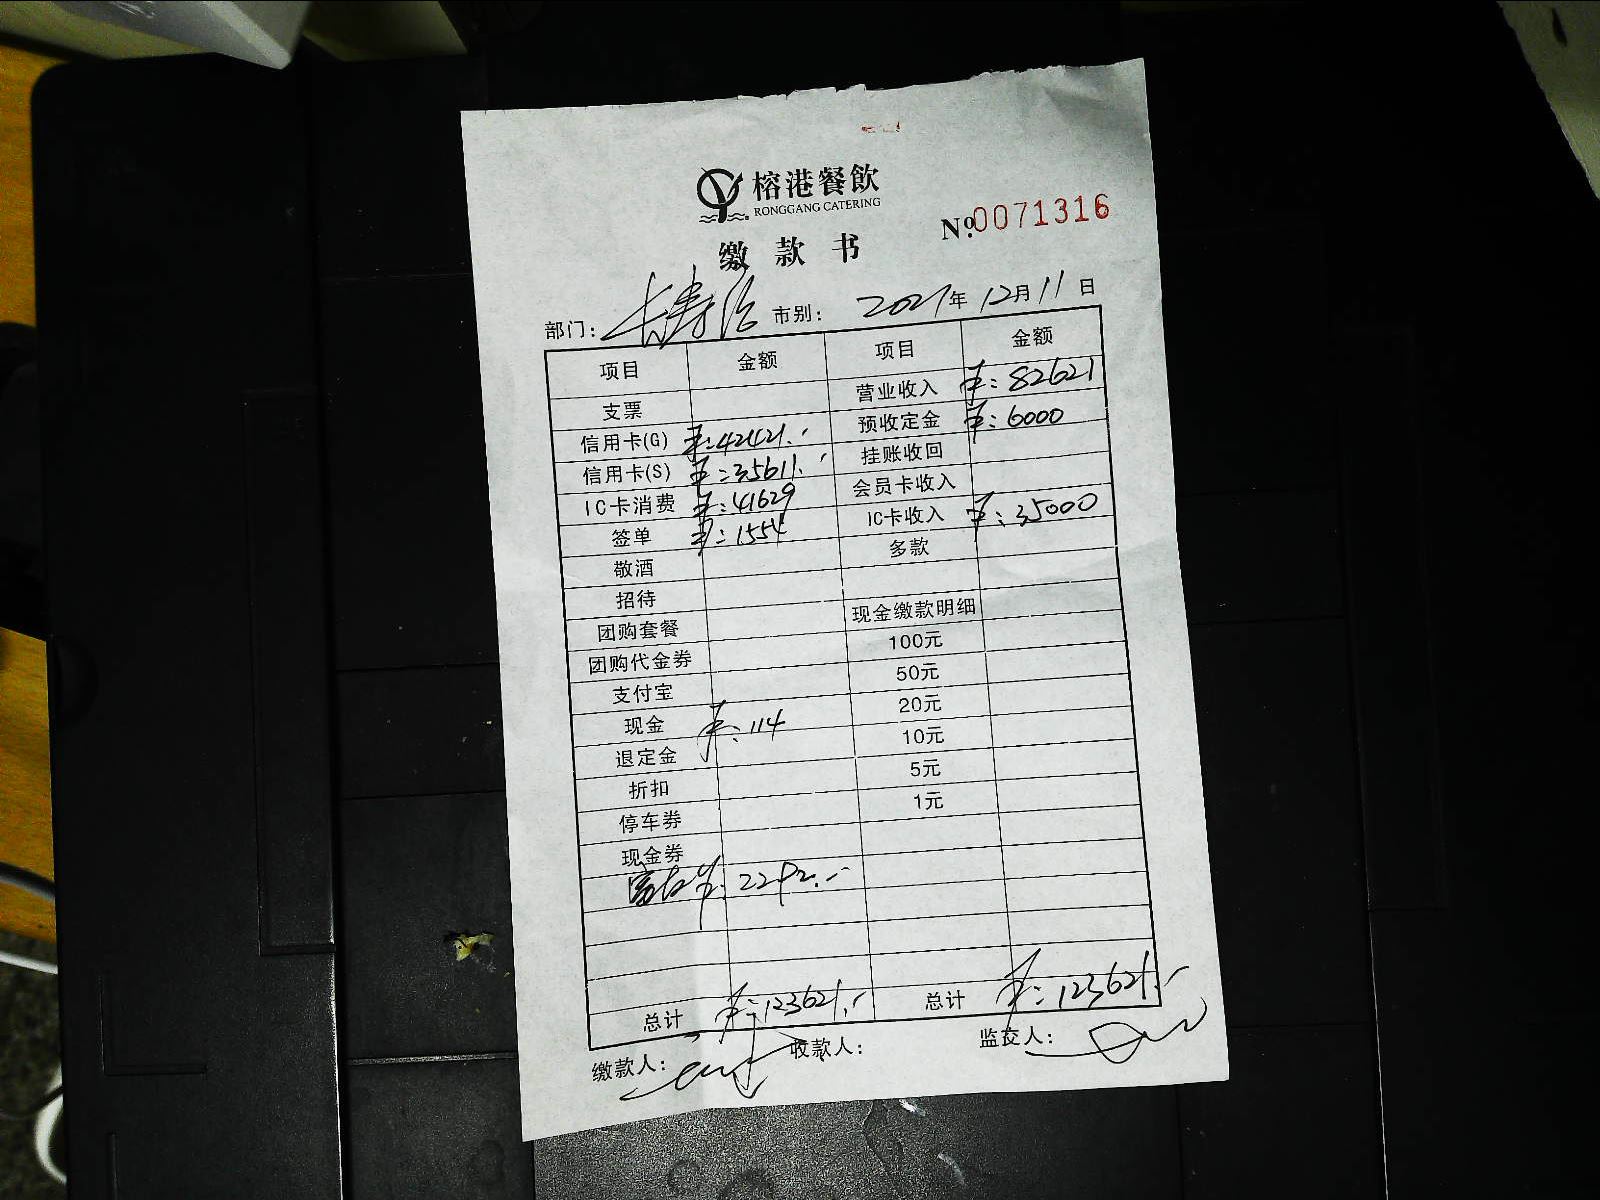 榕港餐飲
RONGGANG CATERING
№0071316
缴款书
部门： 市别： 2021年12月11日
项目 金额 项目 金额
支票 营业收入 ¥：82621
信用卡(G) ¥：42421.- 预收定金 ¥：6000
信用卡(S) ¥：35611.- 挂账收回
IC卡消费 ¥：41629 会员卡收入
签单 ¥：1554 IC卡收入 ¥：35000
敬酒 多款
招待
团购套餐 现金缴款明细
团购代金券 100元
支付宝 50元
现金 ¥：114 20元
退定金 10元
折扣 5元
停车券 1元
现金券
¥：2292.-
总计 ¥：123621.- 总计 ¥：123621.-
缴款人： 收款人： 监交人：